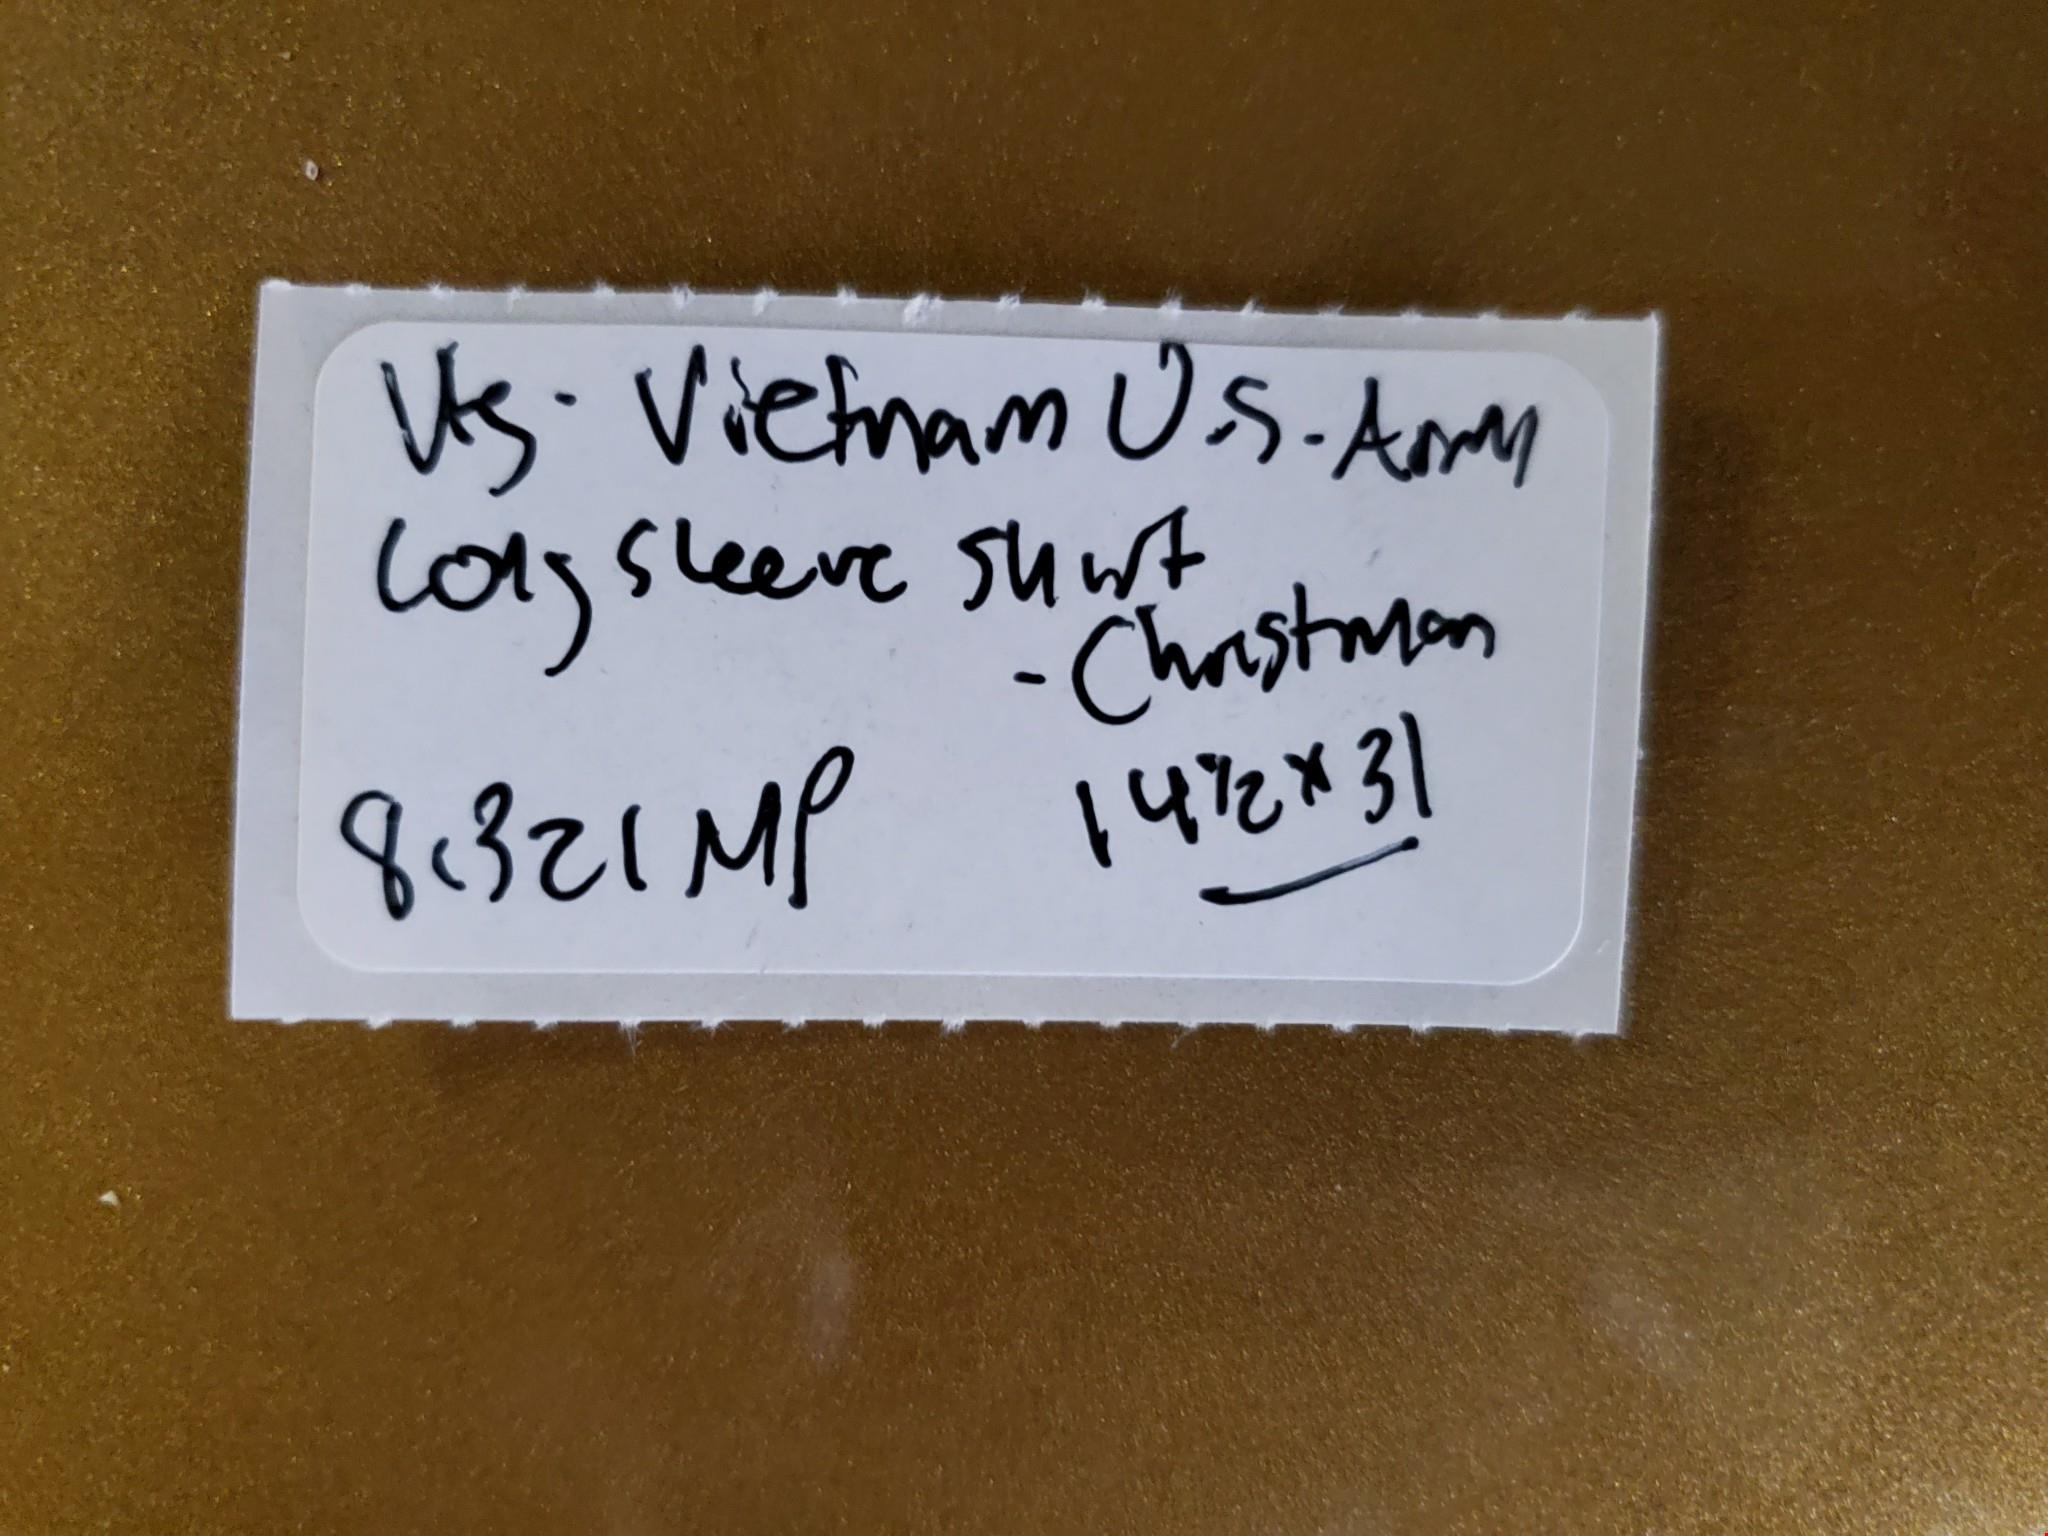 Vtg. Vietnam U.S. Army
Long sleeve shirt
- Christman
8.321 MP
14 1/2 x 31